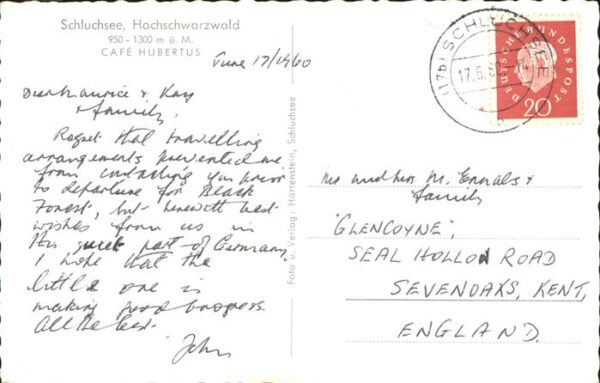 Schluchsee, Hochschwarzwald
950 – 1300 m ü. M.
CAFÉ HUBERTUS
June 17/1960
Dear Maurice & Kay
& family,
Regret that travelling
arrangements prevented me
from contacting you prior
to departure for Black
Forest, but herewith best
wishes from us in
this quiet part of Germany.
I hope that the
little one is
making good progress.
All the best.
John
Foto u. Verlag: Hartenstein, Schluchsee
(17b) SCHLUCHSEE
17.6.60
DEUTSCHE BUNDESPOST
20
Mr and Mrs. M. &
family
'GLENCOYNE',
SEAL HOLLOW ROAD
SEVENOAKS, KENT,
ENGLAND.